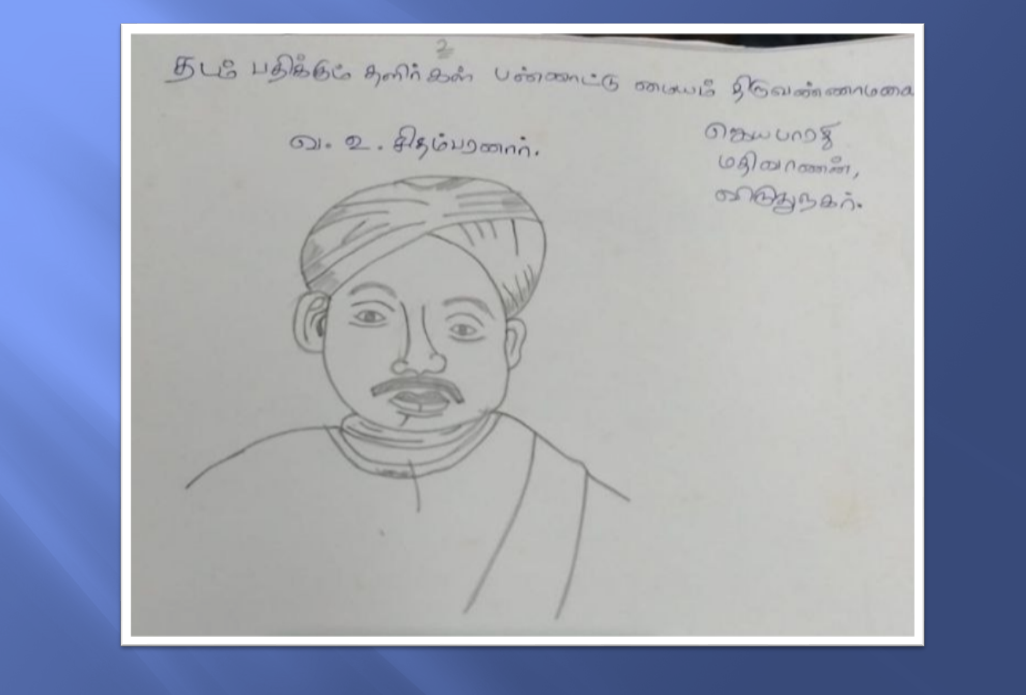 2
தடம் பதிக்கும் தளிர்கள் பன்னாட்டு மையம் திருவண்ணாமலை
வ. உ. சிதம்பரனார்.
ஜெயபாரதி
மதிவாணன்,
விருதுநகர்.